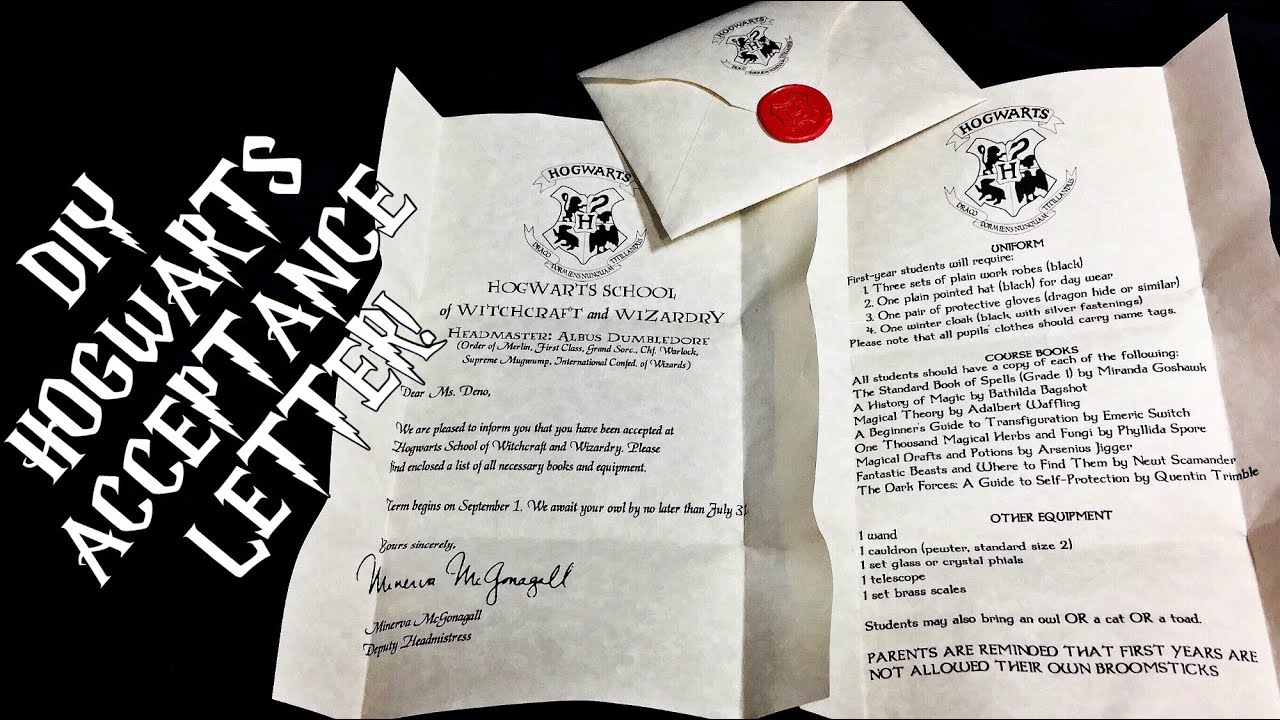 DIY
HOGWARTS
ACCEPTANCE
LETTER!
HOGWARTS
DRACO DORMIENS NUNQUAM TITILLANDUS
HOGWARTS SCHOOL
of WITCHCRAFT and WIZARDRY
HEADMASTER: ALBUS DUMBLEDORE
(Order of Merlin, First Class, Grand Sorc., Chf. Warlock,
Supreme Mugwump, International Confed. of Wizards)
Dear Ms. Deno,
We are pleased to inform you that you have been accepted at
Hogwarts School of Witchcraft and Wizardry. Please
find enclosed a list of all necessary books and equipment.
Term begins on September 1. We await your owl by no later than July 31
Yours sincerely,
Minerva McGonagall
Minerva McGonagall
Deputy Headmistress
HOGWARTS
DRACO DORMIENS NUNQUAM TITILLANDUS
HOGWARTS
H
DRACO DORMIENS NUNQUAM TITILLANDUS
UNIFORM
First-year students will require:
1. Three sets of plain work robes (black)
2. One plain pointed hat (black) for day wear
3. One pair of protective gloves (dragon hide or similar)
4. One winter cloak (black, with silver fastenings)
Please note that all pupils' clothes should carry name tags.
COURSE BOOKS
All students should have a copy of each of the following:
The Standard Book of Spells (Grade 1) by Miranda Goshauk
A History of Magic by Bathilda Bagshot
Magical Theory by Adalbert Waffling
A Beginner's Guide to Transfiguration by Emeric Switch
One Thousand Magical Herbs and Fungi by Phyllida Spore
Magical Drafts and Potions by Arsenius Jigger
Fantastic Beasts and Where to Find Them by Newt Scamander
The Dark Forces: A Guide to Self-Protection by Quentin Trimble
OTHER EQUIPMENT
1 wand
1 cauldron (pewter, standard size 2)
1 set glass or crystal phials
1 telescope
1 set brass scales
Students may also bring an owl OR a cat OR a toad.
PARENTS ARE REMINDED THAT FIRST YEARS ARE
NOT ALLOWED THEIR OWN BROOMSTICKS